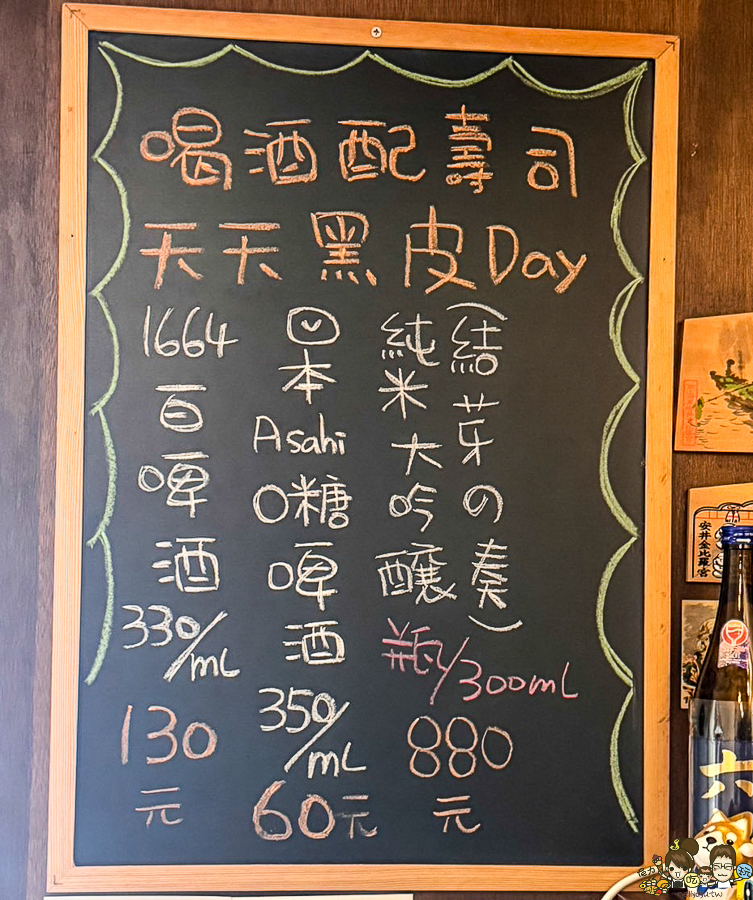 喝酒配壽司
天天黑皮Day
1664
百
啤
酒
330/mL
130
元
日
本
Asahi
0糖
啤
酒
350/mL
60元
純米大吟醸
(結芽の奏)
瓶/300mL
880
元
安井金比羅宮
六